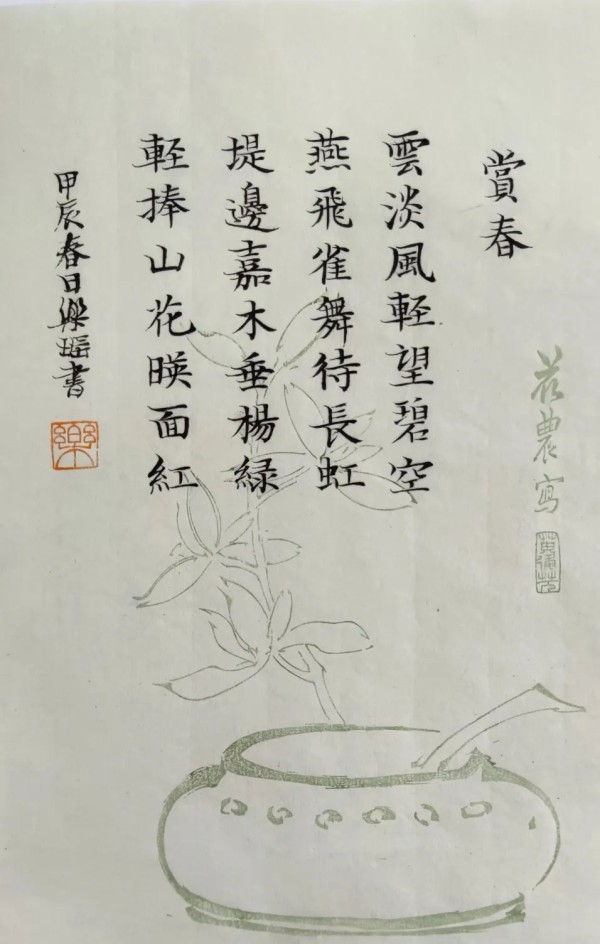 賞春
雲淡風軽望碧空
燕飛雀舞待長虹
堤邊嘉木垂楊緑
軽捧山花暎面紅
甲辰春日樂瑶書
樂
農寫